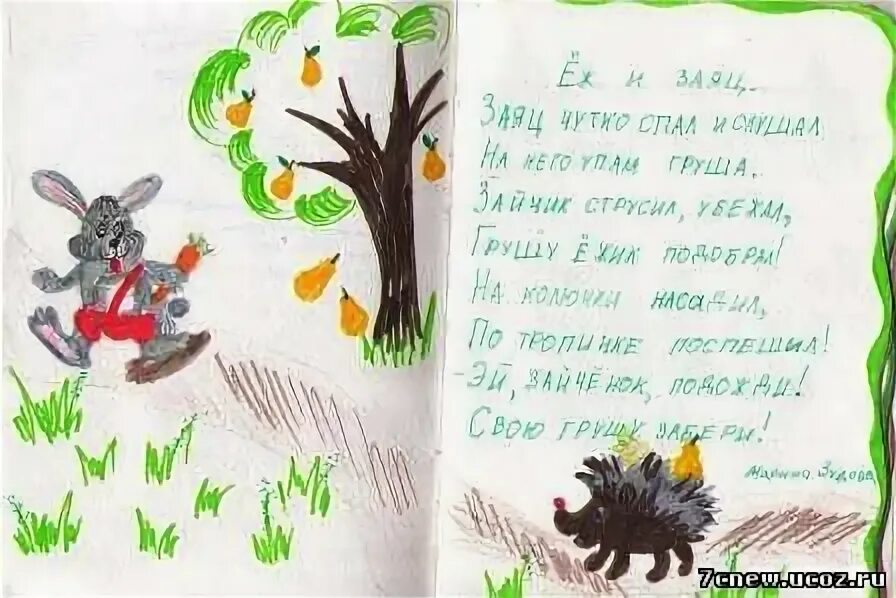 Ёж и заяц.
Заяц чутко спал и слушал
На него упала груша.
Зайчик струсил, убежал,
Грушу ёжик подобрал!
На колючки насадил,
По тропинке поспешил!
- Эй, зайчёнок, подожди!
Свою грушу забери!
Зудова
7cnew.ucoz.ru